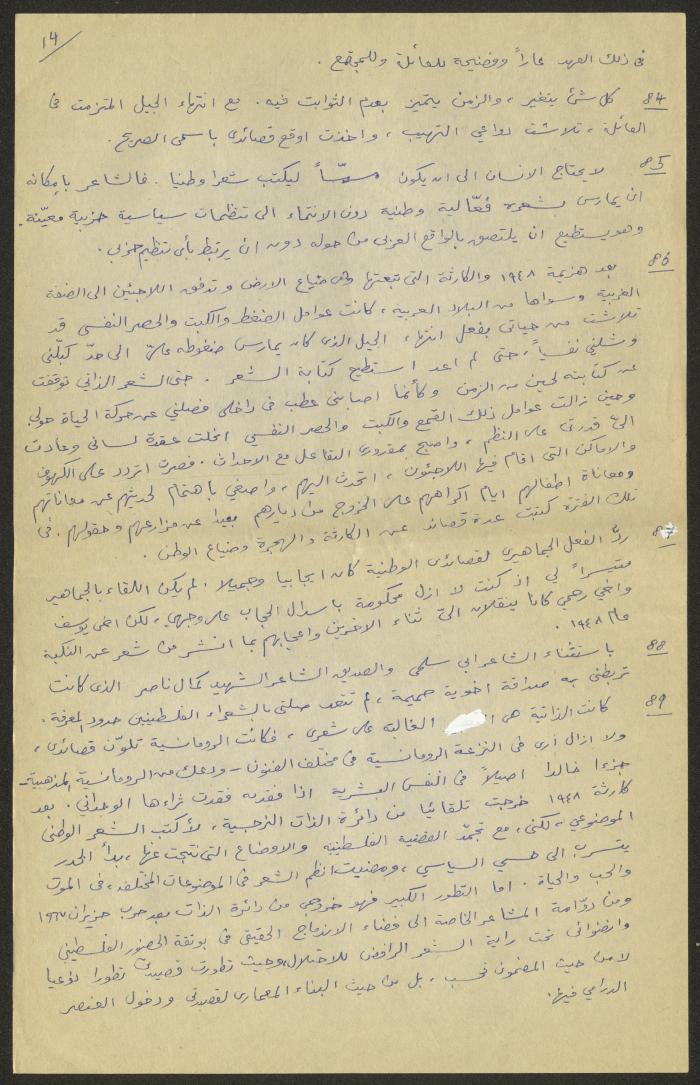 ١٤
في ذلك العهد عاراً وفضيحة للعائلة وللمجتمع .
٨٤ كل شئ يتغير ، والزمن يتميز بعدم الثوابت فيه . مع انتهاء الجيل المتزمت في
العائلة ، تلاشت دواعي التهيب ، واخذت اوقع قصائدي باسمي الصريح .
٨٥ لا يحتاج الانسان الى ان يكون مسيّساً ليكتب شعرا وطنيا . فالشاعر بإمكانه
ان يمارس بشعره فعّالية وطنية دون الانتماء الى تنظيمات سياسية حزبية معيّنة.
وهو يستطيع ان يلتصق بالواقع العربي من حوله دون ان يرتبط بأي تنظيم حزبي .
٨٦ بعد هزيمة ١٩٤٨ والكارثة التي تبعتها وهي ضياع الارض وتدفق اللاجئين الى الضفة
الغربية وسواها من البلاد العربية ، كانت عوامل الضغط والكبت والحصر النفسي قد
تلاشت من حياتي بفعل انتهاء الجيل الذي كان يمارس ضغوطه عليّ الى حدّ كبّلني
وشلّني نفسياً ، حتى لم اعد استطيع كتابة الشعر . حتى الشعر الذاتي توقفت
عن كتابته لحين من الزمن وكأنما اصابني عطب في داخلي فصلني عن حركة الحياة حولي
وحين زالت عوامل ذلك القمع والكبت والحصر النفسي انحلت عقدة لساني وعادت
اليّ قدرتي على النظم ، واصبح بمقدوري التفاعل مع الاحداث . فصرت اتردد على الكهوف
والاماكن التي اقام فيها اللاجئون ، اتحدث اليهم ، واصغي باهتمام لحديثهم عن معاناتهم
ومعاناة اطفالهم ايام اكراههم على الخروج من ديارهم بعيدا عن مزارعهم وحقولهم . في
تلك الفترة كتبت عدة قصائد عن الكارثة والهجرة وضياع الوطن .
٨٧ ردّ الفعل الجماهيري لقصائدي الوطنية كان ايجابيا وجميلا . لم يكن اللقاء بالجماهير
متيسراً لي اذ كنت لا ازال محكومة باسدال الحجاب على وجهي ، لكن اخي يوسف
واخي رحمي كانا ينقلان اليّ ثناء الآخرين واعجابهم بما انتشر من شعر عن النكبة
عام ١٩٤٨ .
٨٨ باستثناء الشاعر ابي سلمى والصديق الشاعر الشهيد كمال ناصر الذي كانت
تربطني به صداقة اخوية حميمة ، لم تتعد صلتي بالشعراء الفلسطينيين حدود المعرفة .
٨٩ كانت الذاتية هي الغالبة على شعري ، فكانت الرومانسية تلوّن قصائدي ،
ولا ازال ارى في النزعة الرومانسية في مختلف الفنون - ودعك من الرومانسية المذهبية -
جزءا خالدا اصيلاً في النفس البشرية اذا فقدته فقدت ثراءها الوجداني . بعد
كارثة ١٩٤٨ خرجت تلقائيا من دائرة الذات النرجسية ، لأكتب الشعر الوطني
الموضوعي ، لكن ، مع تجمّد القضية الفلسطينية والاوضاع التي نتجت عنها ، بدأ الخدر
يتسرب الى حسي السياسي ، ومضيت انظم الشعر في الموضوعات المختلفة ، في الموت
والحب والحياة . اما التطور الكبير فهو خروجي من دائرة الذات بعد حرب حزيران ١٩٦٧
ومن دوّامة المشاعر الخاصة الى فضاء الاندماج الحقيقي في بوتقة الحضور الفلسطيني
وانضوائي تحت راية الشعر الرافض للاحتلال، وحيث تطورت قصيدتي تطورا نوعيا
لا من حيث المضمون فحسب ، بل من حيث البناء المعماري لقصيدتي ودخول العنصر
الدرامي فيها .